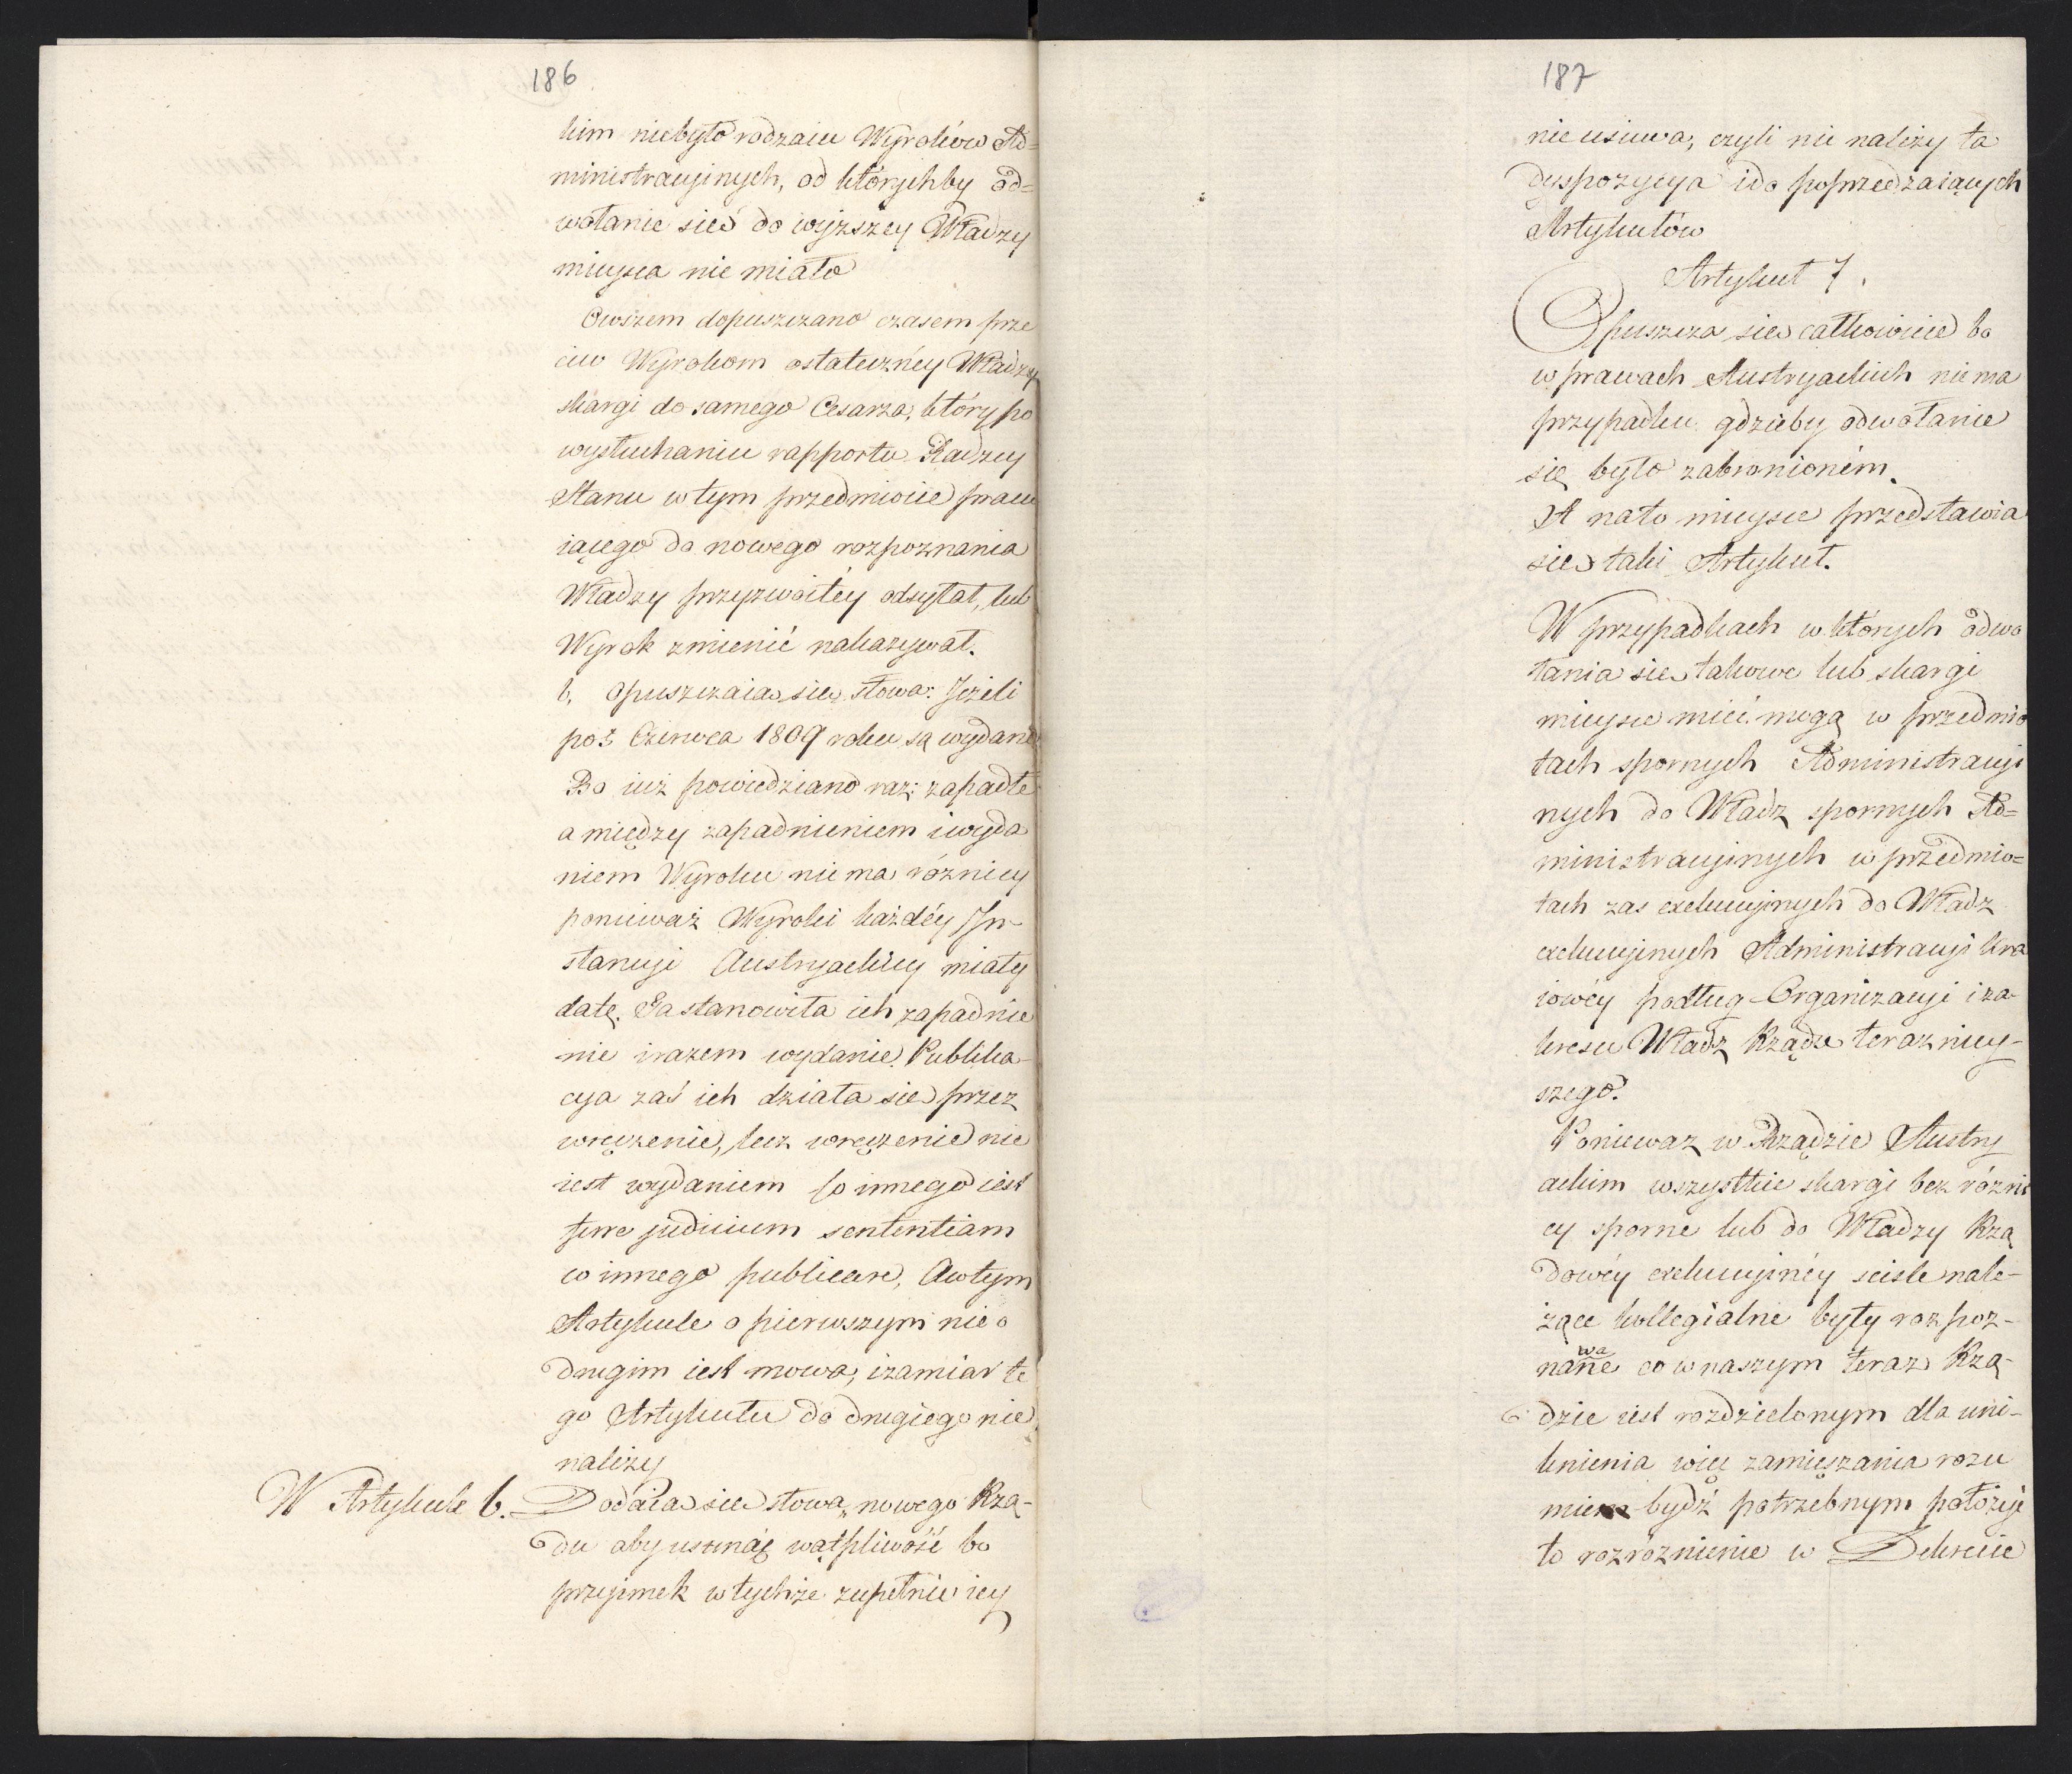 186
kim niebyło rodzaiu Wyroków Ad=
ministracyinych, od którychby od=
wołanie się do wyższey Władzy
mieysca nie miało
Owszem dopuszczano czasem prze
ciw Wyrokom ostateczney Władzy
skargi do samego Cesarza, który po
wysłuchaniu rapportu Radzcy
Stanu w tym przedmiocie pracu
iącego do nowego rozpoznania
Władzy przyzwoitéy odsyłał, lub
Wyrok zmienić nakazywał.
b, opuszczaią się słowa: Jeżeli
po 3 Czerwca 1809 roku są wydane
Bo iuż powiedziano raz: zapadłe
a między zapadnieniem i wyda
niem Wyroku nie ma różnicy
ponieważ Wyroki każdéy In-
stancyi Austryackiey miały
datę. Ta stanowiła ich zapadnie
nie i razem wydanie. Publika-
cya zaś ich działa się przez
wręczenie, lecz wręczenie nie
iest wydaniem co innego iest
ferre judicium sententiam
co innego publicare, A w tym
Artykule o pierwszym nie o
drugim iest mowa, i zamiar te
go Artykułu do drugiego nie
należy
W Artykule 6. Dodaią się słowa „nowego Rzą-
du aby usunąć wątpliwość bo
przyimek w tychże zupełnie iey
187
nie usuwa, czyli nie należy ta
dyspozycya i do poprzedzaiących
Artykułów
Artykuł 7.
Opuszcza się całkowicie bo
w prawach Austryackich nie ma
przypadku gdzieby odwołanie
się było zabronioném.
A na to mieysce przedstawia
się taki Artykuł.
W przypadkach w których odwo
łania się takowe lub skargi
mieysce mieć mogą w przedmio
tach spornych Administracyi
nych do Władz spornych Ad=
ministracyinych w przedmio=
tach zas exekucyinych do Władz
exekucyinych Administracyi Kra
iowéy podług Organizacyi i za-
kresu Władz Rządu terazniey-
szego.
Ponieważ w Rządzie Austry
ackim wszystkie skargi bez różni
cy sporne lub do Władzy Rzą
dowéy exekucyinéy scisle nale-
żące kollegialne były rozpoz-
wa
nane co w naszym teraz Rzą-
dzie iest rozdzielonym dla uni-
knienia więc zamięszania rozu
miem bydź potrzebnym położyć
to rozróżnienie w Dekrecie